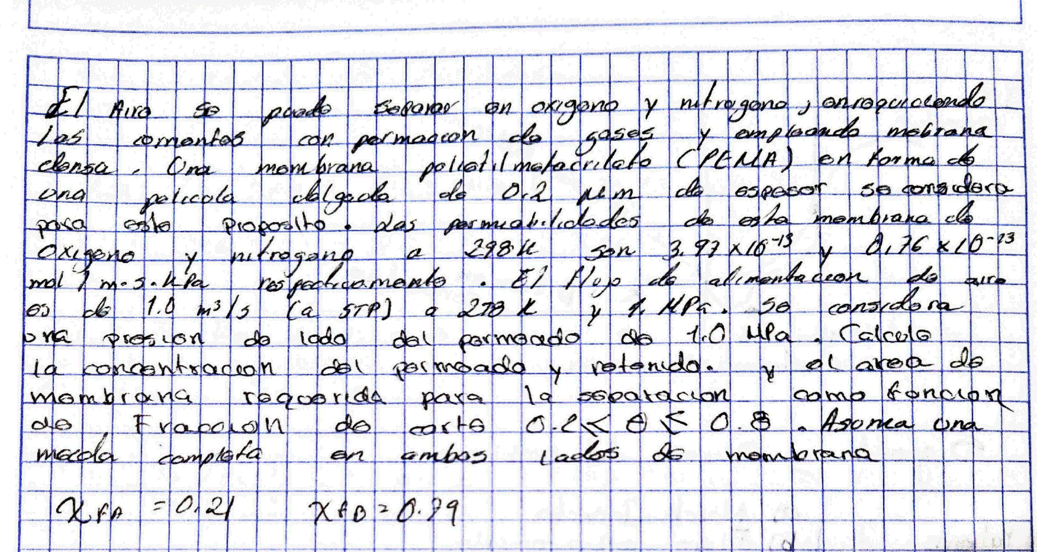 El Aire se puede separar en oxigeno y nitrogeno, enrequeciendo
las corrientes con permeacion de gases y empleando mebrana
densa. Una membrana polietilmetacrilato (PEMA) en forma de
una pelicola delgada de 0.2 μm de espesor se considera
para este proposito. Las permeabilidades de esta membrana de
oxigeno y nitrogeno a 298 K son 3.97 x 10⁻¹³ y 0.76 x 10⁻¹³
mol / m·s·kPa respectivamente. El flujo de alimentacion de aire
es de 1.0 m³/s (a STP) a 278 K y 1. MPa. Se considera
una presion de lado del permeado de 1.0 MPa. Calcule
la concentracion del permeado y retenido. y el area de
membrana requerida para la separacion como funcion
de Fraccion de corte 0.2 < θ ≤ 0.8. Asuma una
mezcla completa en ambos lados de membrana
XfA = 0.21 XfB = 0.79